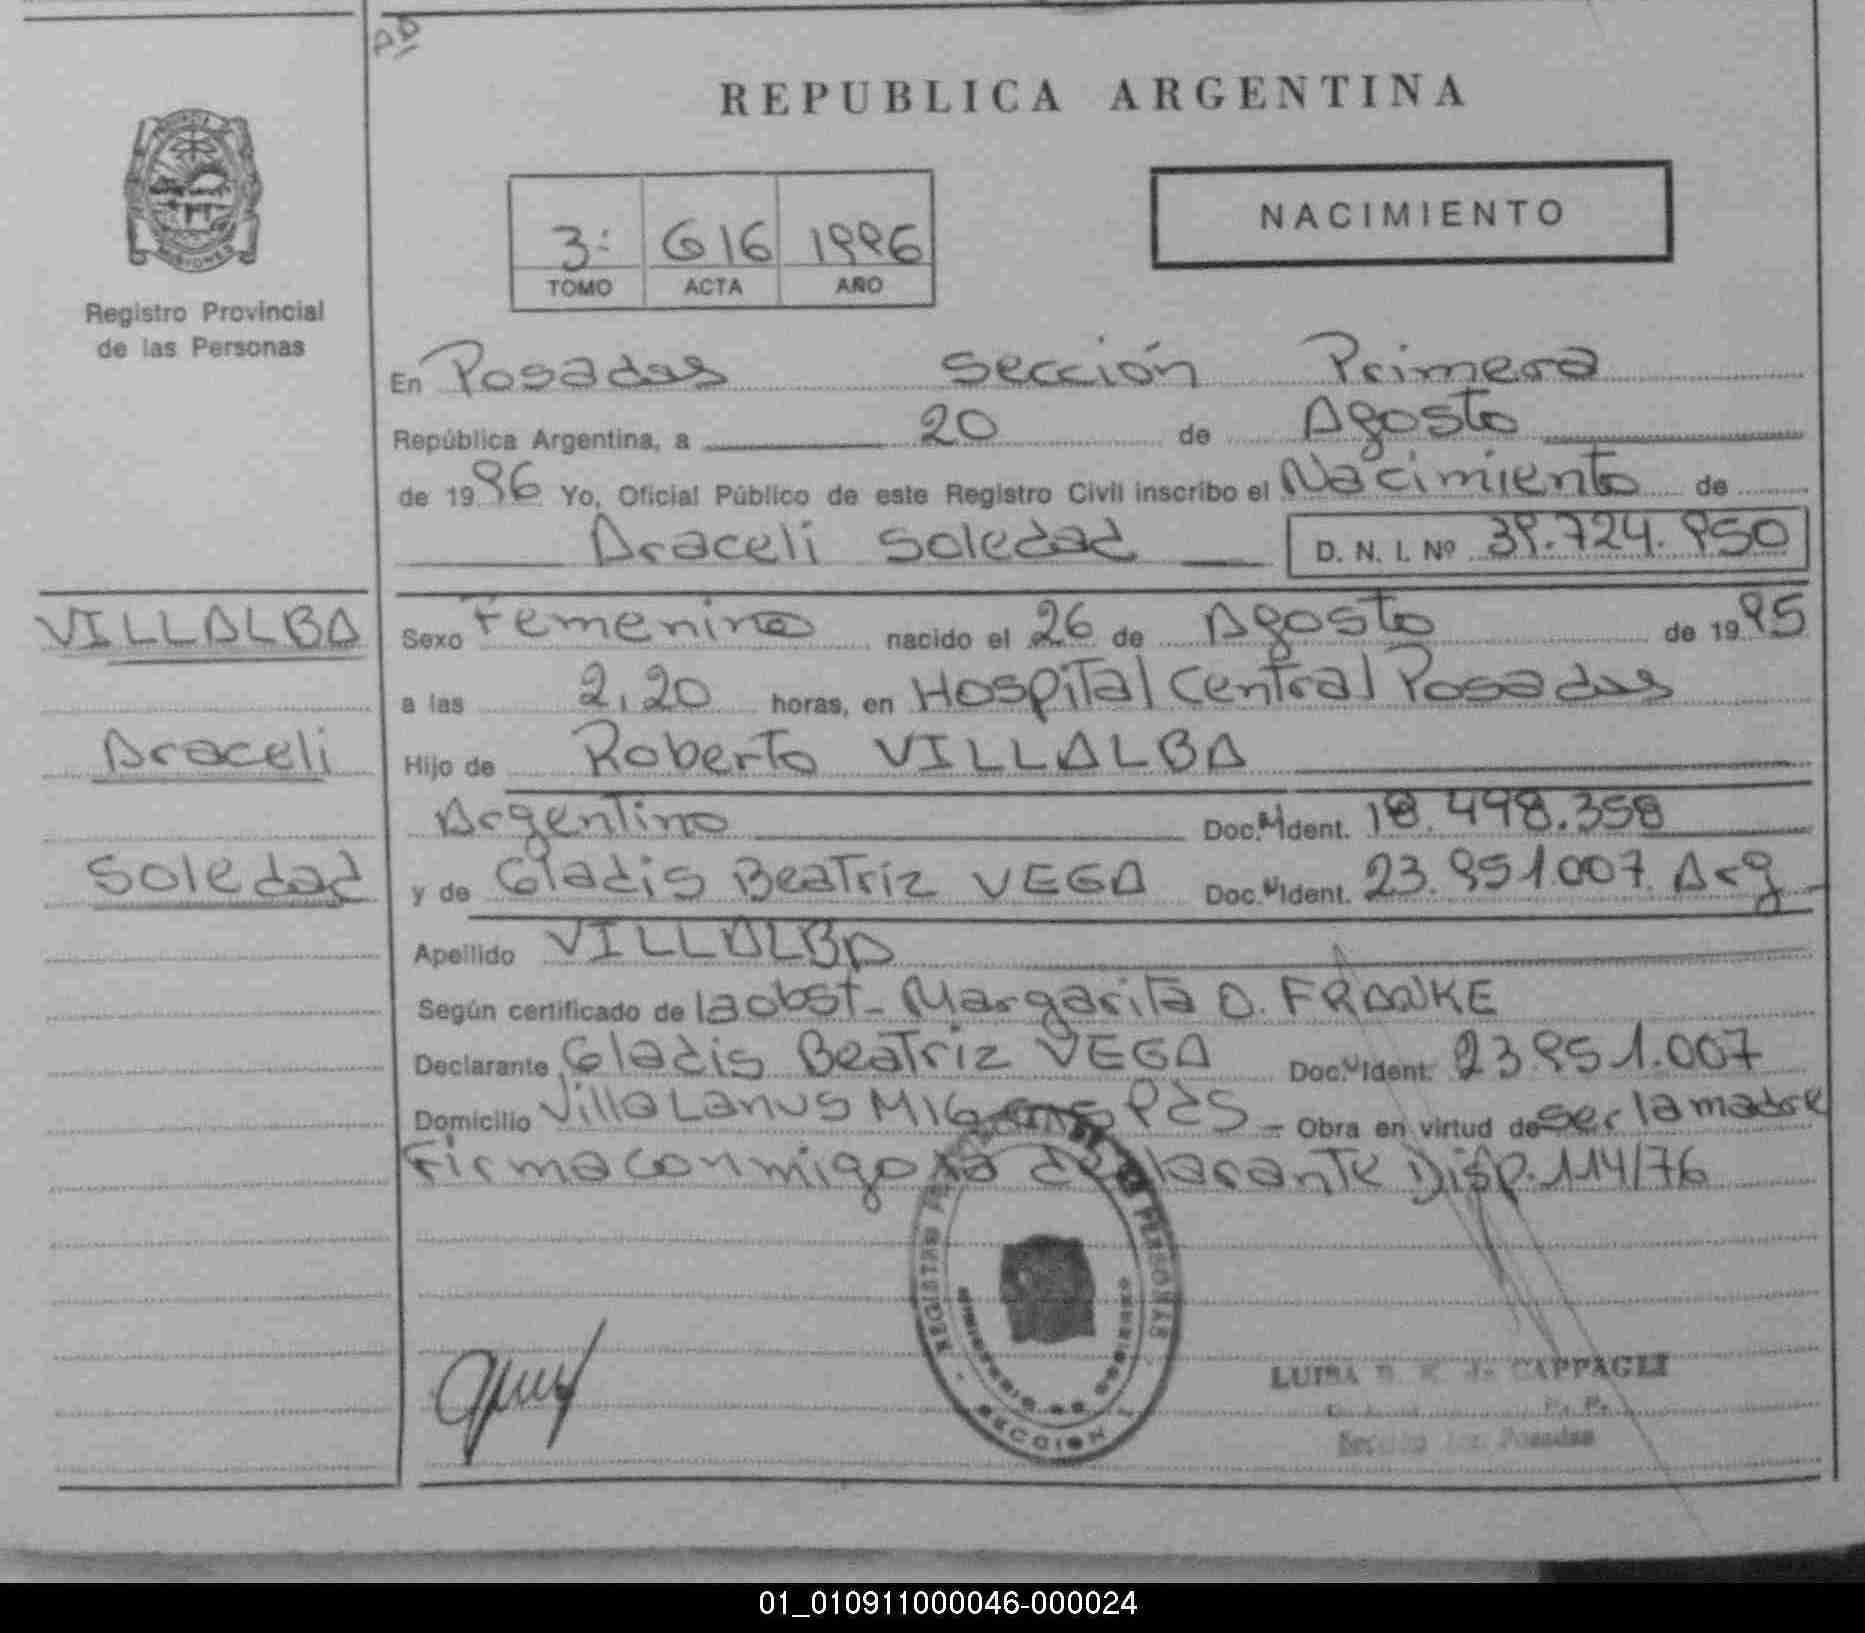 REPUBLICA ARGENTINA
NACIMIENTO
3: 616 1996
TOMO ACTA AÑO
Registro Provincial
de las Personas
En Posadas Sección Primera
República Argentina, a 20 de Agosto
de 1996 Yo, Oficial Público de este Registro Civil inscribo el Nacimiento de
Araceli Soledad D. N. I. Nº 39.724.950
VILLALBA
Araceli
Soledad
Sexo Femenino nacido el 26 de Agosto de 1995
a las 2,20 horas, en Hospital Central Posadas
Hijo de Roberto VILLALBA
Argentino Doc. Ident. 18.498.358
y de Gladis Beatriz VEGA Doc. Ident. 23.951.007. Arg
Apellido VILLALBA
Según certificado de la obst- Margarita O. FRANKE
Declarante Gladis Beatriz VEGA Doc. Ident. 23.951.007
Domicilio Villa Lanus Pds - Obra en virtud de ser la madre
Firma conmigo la declarante Disp. 114/76
PERSONAS
SECCION 1
LUISA de CAPPAGLI
Posadas
01_010911000046-000024